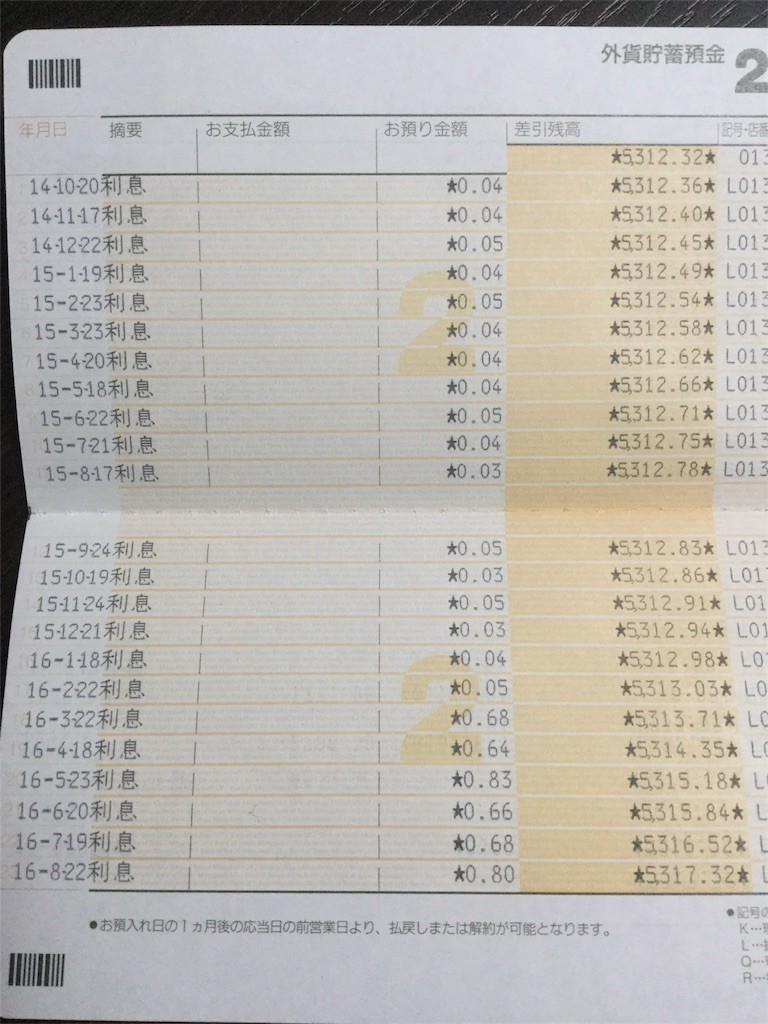 外貨貯蓄預金 2
年月日 摘要 お支払金額 お預り金額 差引残高 記号・店番
★5,312.32★ 013
14-10-20利息 ★0.04 ★5,312.36★ L013
14-11-17利息 ★0.04 ★5,312.40★ L013
14-12-22利息 ★0.05 ★5,312.45★ L013
15-1-19利息 ★0.04 ★5,312.49★ L013
15-2-23利息 ★0.05 ★5,312.54★ L013
15-3-23利息 ★0.04 ★5,312.58★ L013
15-4-20利息 ★0.04 ★5,312.62★ L013
15-5-18利息 ★0.04 ★5,312.66★ L013
15-6-22利息 ★0.05 ★5,312.71★ L013
15-7-21利息 ★0.04 ★5,312.75★ L013
15-8-17利息 ★0.03 ★5,312.78★ L013
15-9-24利息 ★0.05 ★5,312.83★ L013
15-10-19利息 ★0.03 ★5,312.86★ L01
15-11-24利息 ★0.05 ★5,312.91★ L01
15-12-21利息 ★0.03 ★5,312.94★ L01
16-1-18利息 ★0.04 ★5,312.98★ L0
16-2-22利息 ★0.05 ★5,313.03★ L0
16-3-22利息 ★0.68 ★5,313.71★ L0
16-4-18利息 ★0.64 ★5,314.35★ L
16-5-23利息 ★0.83 ★5,315.18★ L
16-6-20利息 ★0.66 ★5,315.84★ L
16-7-19利息 ★0.68 ★5,316.52★ L
16-8-22利息 ★0.80 ★5,317.32★ L
●お預入れ日の1ヵ月後の応当日の前営業日より、払戻しまたは解約が可能となります。
●記号の
K…
L…
Q…
R…